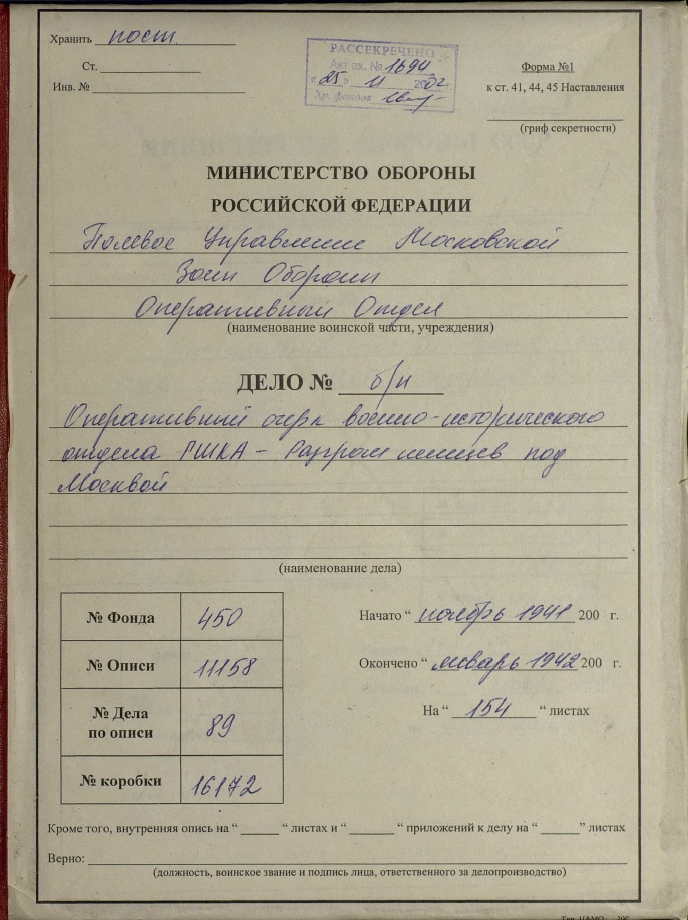 Хранить пост.
Ст.
Инв. №
РАССЕКРЕЧЕНО
Акт вх. № 1694
"25" 11 2002 г.
Хр. фондов
Форма №1
к ст. 41, 44, 45 Наставления
(гриф секретности)
МИНИСТЕРСТВО ОБОРОНЫ
РОССИЙСКОЙ ФЕДЕРАЦИИ
Полевое Управление Московской
Зоны Обороны
Оперативный Отдел
(наименование воинской части, учреждения)
ДЕЛО № б/н
Оперативный очерк военно-исторического
отдела ГШКА – Разгром немцев под
Москвой
(наименование дела)
№ Фонда 450
№ Описи 11158
№ Дела
по описи 89
№ коробки 16172
Начато " ноябрь 1941 200 г.
Окончено " январь 1942 200 г.
На " 154 " листах
Кроме того, внутренняя опись на " " листах и " " приложений к делу на " " листах
Верно:
(должность, воинское звание и подпись лица, ответственного за делопроизводство)